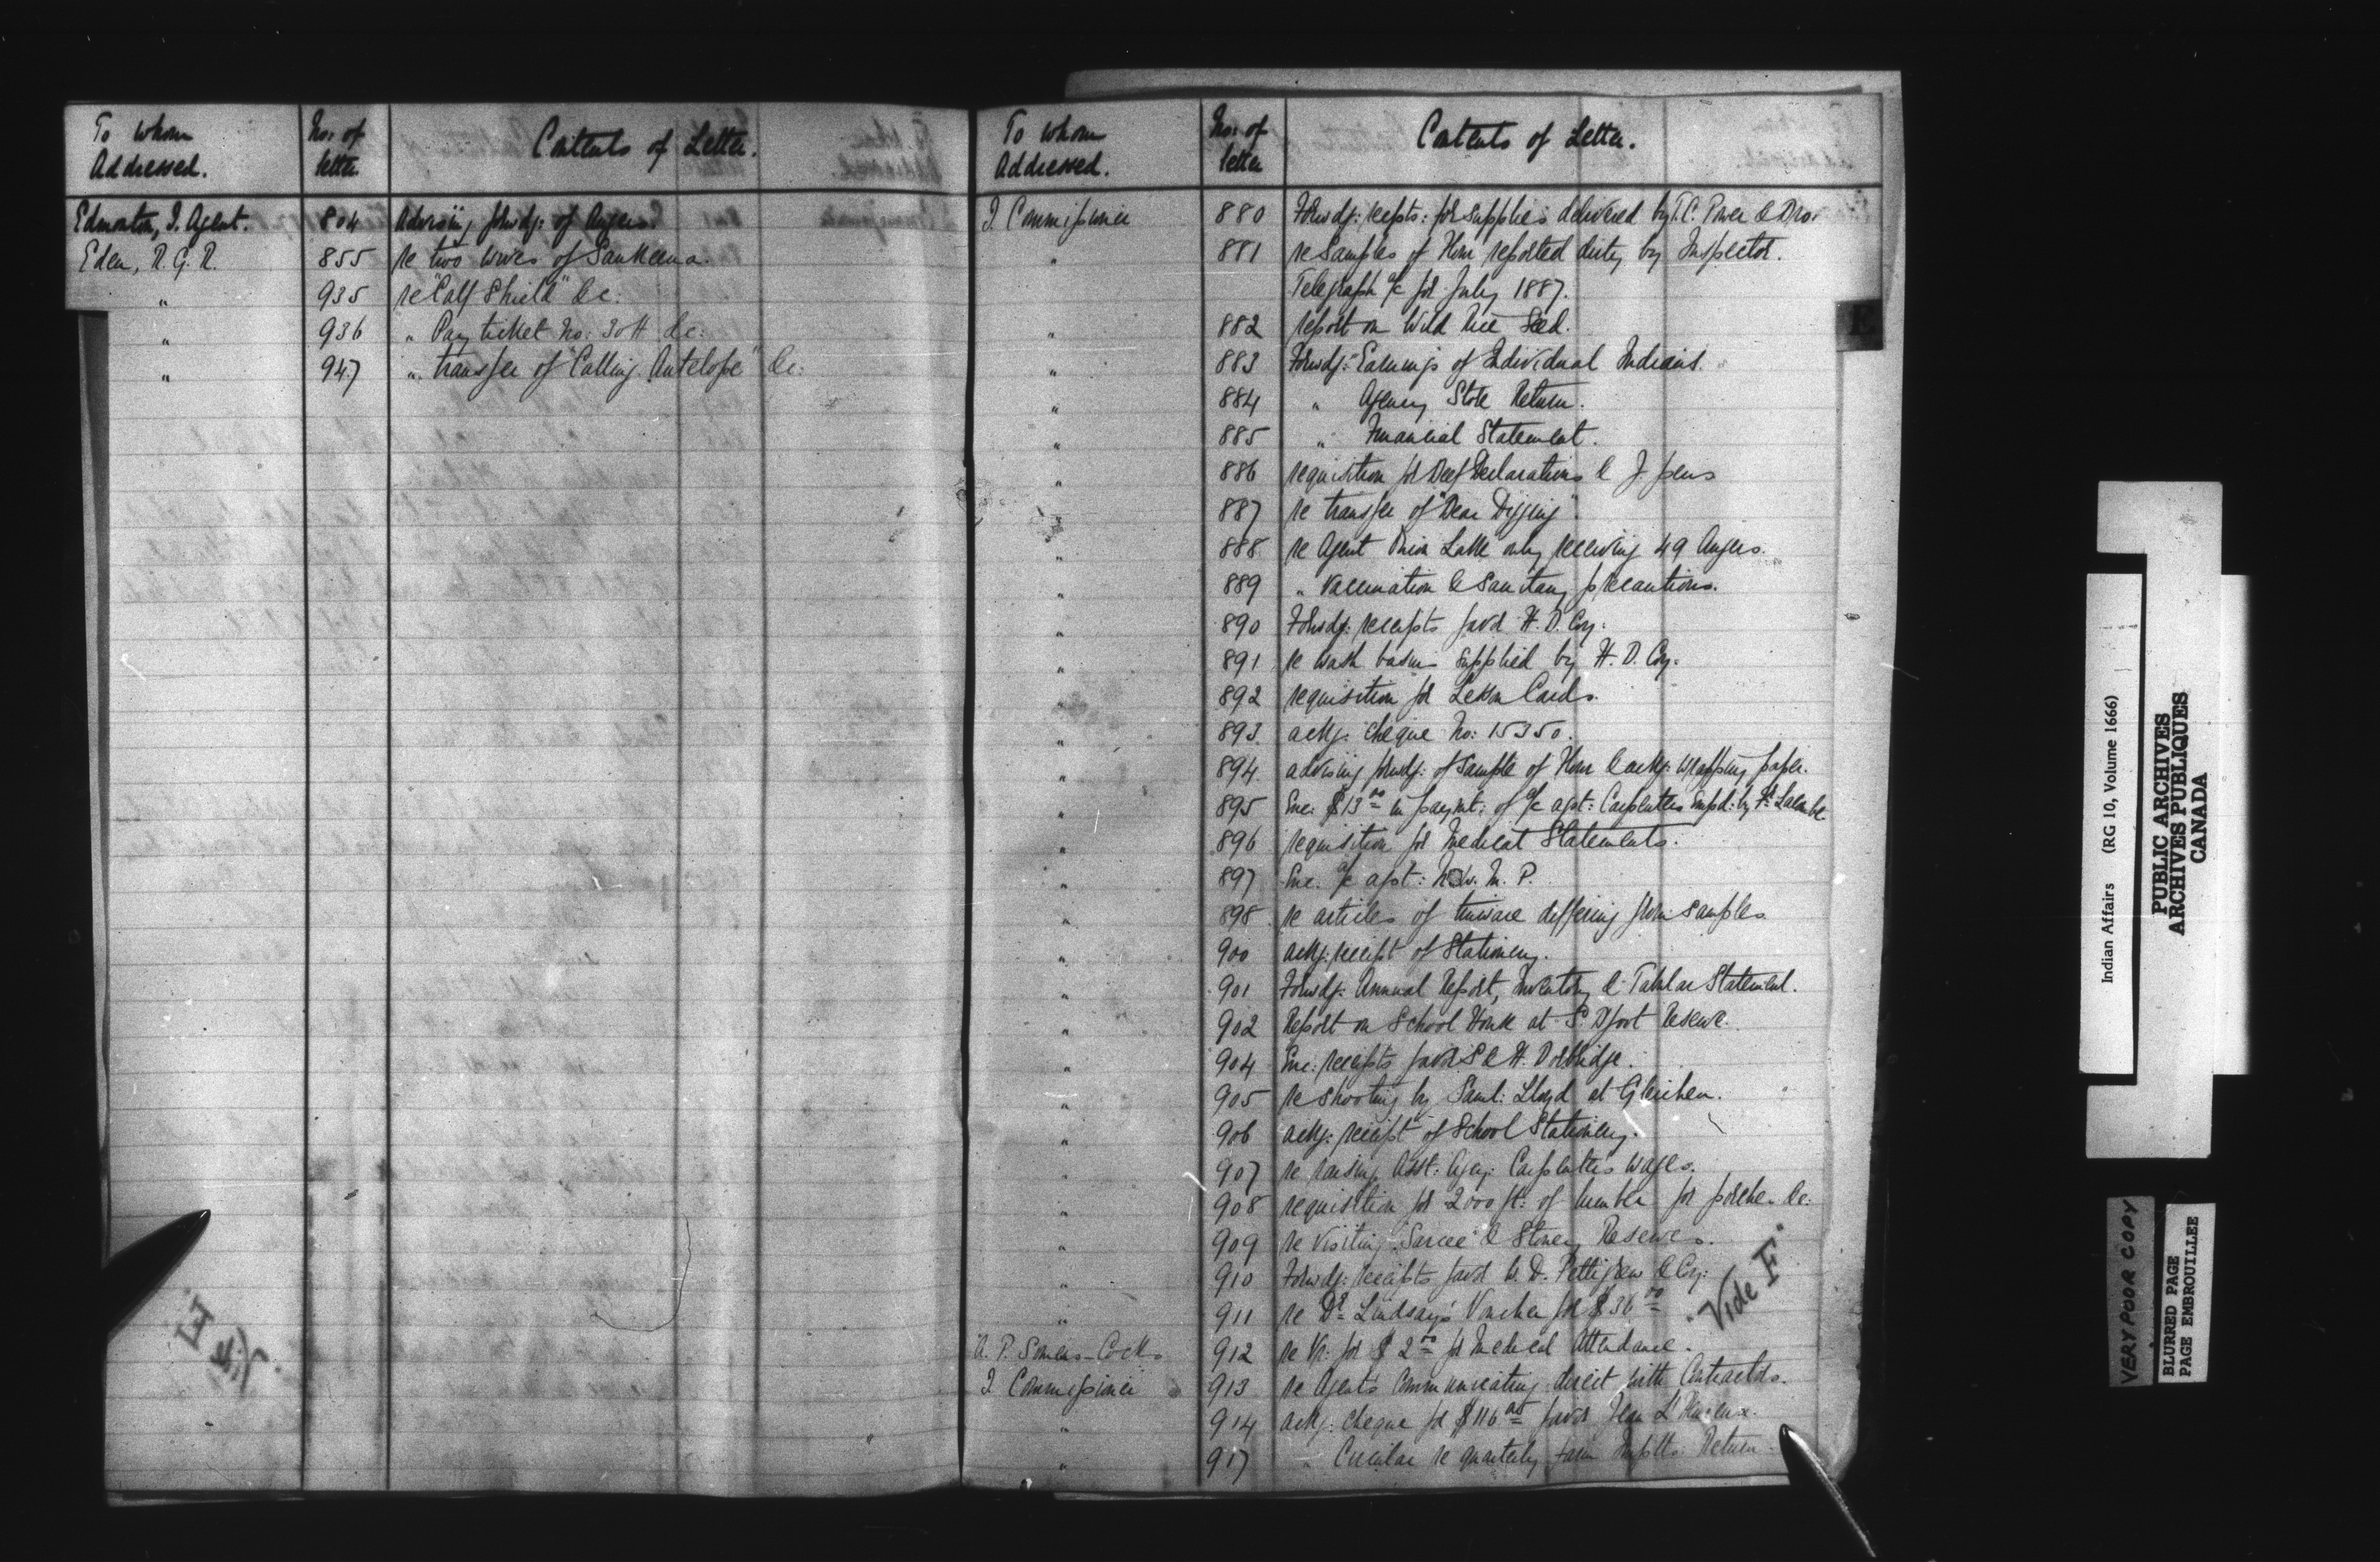 To whom Addressed. No: of letter. Contents of Letter.
Edmonton, I. Agent. 804 Advising forwdg: of Augers.
Eden, R. G. R. 855 re two wives of Sankeena.
" 935 re "Calf Shield" &c:
" 936 " Pay ticket No: 30 H &c:
" 947 " transfer of "Calling Antelope" &c:
To whom Addressed. No: of letter Contents of Letter.
I. Commissioner 880 Forwdg: recpts: for supplies delivered by T.C. Power & Bro:
" 881 re Samples of Flour reported dirty by Inspector.
Telegraph a/c for July 1887.
" 882 report on Wild Rice Seed.
" 883 Forwdg: Earnings of Individual Indians.
" 884 " Agency Store Return.
" 885 " Financial Statement.
" 886 requisition for Beef Declarations & J. pens
" 887 re transfer of "Bear Digging".
" 888 re Agent Onion Lake only receiving 49 Augers.
" 889 " Vaccination & Sanitary precautions.
" 890 Forwdg: receipts favd H. B. Coy:
" 891 re wash basins supplied by H. B. Coy:
" 892 requisition for Lesson Cards.
" 893 ackg: cheque No: 15350.
" 894 advising forwdg: of sample of Flour & ackg: wrapping paper.
" 895 Enc: $13 00 in paymt: of a/c agst: Carpenters Empd: by Fr. Lacombe
" 896 requisition for Medical Statements.
" 897 Enc. a/c agst: N. W. M. P.
" 898 re articles of tinware differing from samples
" 900 ackg: receipt of Stationery.
" 901 Forwdg: Annual Report, Inventory & Tabular Statement.
" 902 Report on School House at S. Bfoot Reserve.
" 904 Enc: receipts favd. S & H. Borbridge.
" 905 re shooting by Saml: Lloyd at Gleichen.
" 906 ackg: receipt of School Stationery.
" 907 re raising Asst: Agcy: Carpenters wages.
" 908 requisition for 2000 ft: of lumber for porche &c:
" 909 re Visiting "Sarcee" & Stoney Reserves.
" 910 Forwdg: receipts favd W. D. Pettigrew & Coy:
" 911 re Dr. Lindsay's Voucher for $36 00
A. P. Somers-Cocks 912 re Vr: for $2 00 for Medical Attendance.
I. Commissioner 913 re Agents communicating direct with Contractors.
" 914 ackg: cheque for $116 favor Jean L'Heureux.
" 917 " Circular re quarterly farm Return
Vide F.
Vide E
Indian Affairs (RG 10, Volume 1666)
PUBLIC ARCHIVES
ARCHIVES PUBLIQUES
CANADA
VERY POOR COPY
BLURRED PAGE
PAGE EMBROUILLEE